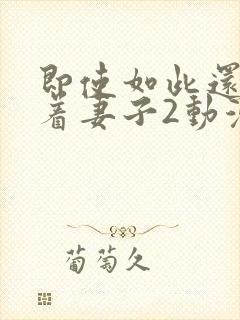 即使如此還
着妻子2動
葡萄久